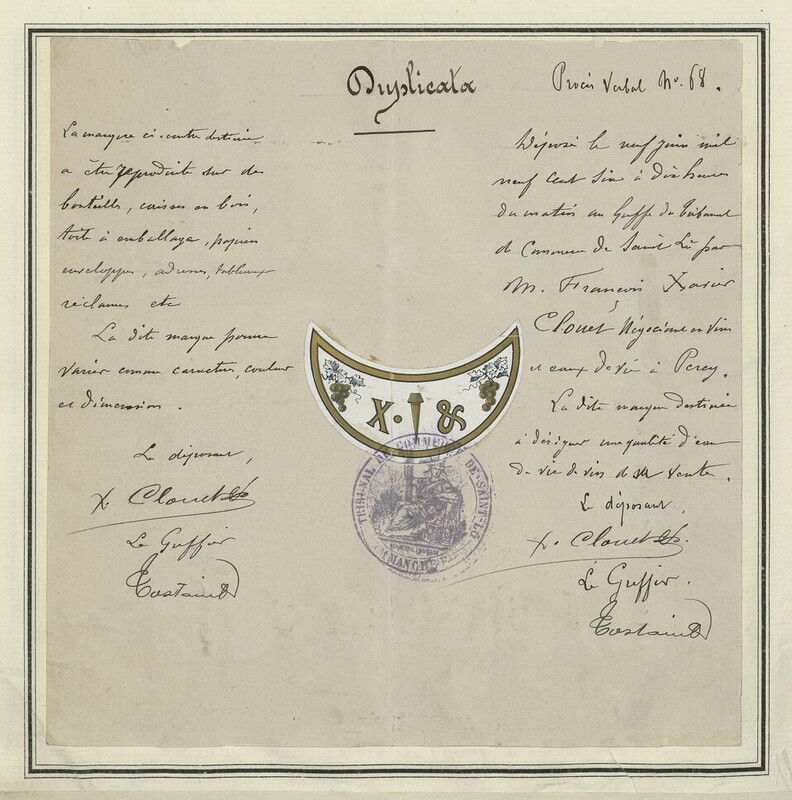 Duplicata
Procès Verbal No. 68.
La marque ci-contre destinée
a être reproduite sur des
bouteilles, caisses en bois,
toile à emballage, papiers
enveloppes, adresses, tableaux
réclames etc
La dite marque pourra
varier comme caractère, couleur
et dimension.
Le déposant,
X. Clouet
Le Greffier
Tostain
Déposé le neuf juin mil
neuf cent six à dix heures
du matin au Greffe du Tribunal
de Commerce de Saint Lô par
M. François Xavier
Clouet Négociant en vins
et eaux de vie à Percy.
La dite marque destinée
à désigner une qualité d'eau
de vie de vins de sa vente.
Le déposant,
X. Clouet
Le Greffier.
Tostain
X. &
TRIBUNAL DE COMMERCE DE SAINT-LÔ
MANCHE